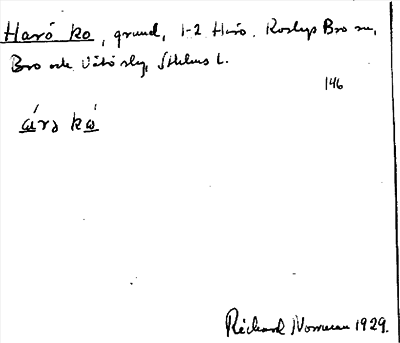 Harö ko, grund, 1-2 Harö. Roslags Bro sn,
Bro och Vätö slg, Sthlms l.
146
ώrə kὼ
Richard Norman 1929.